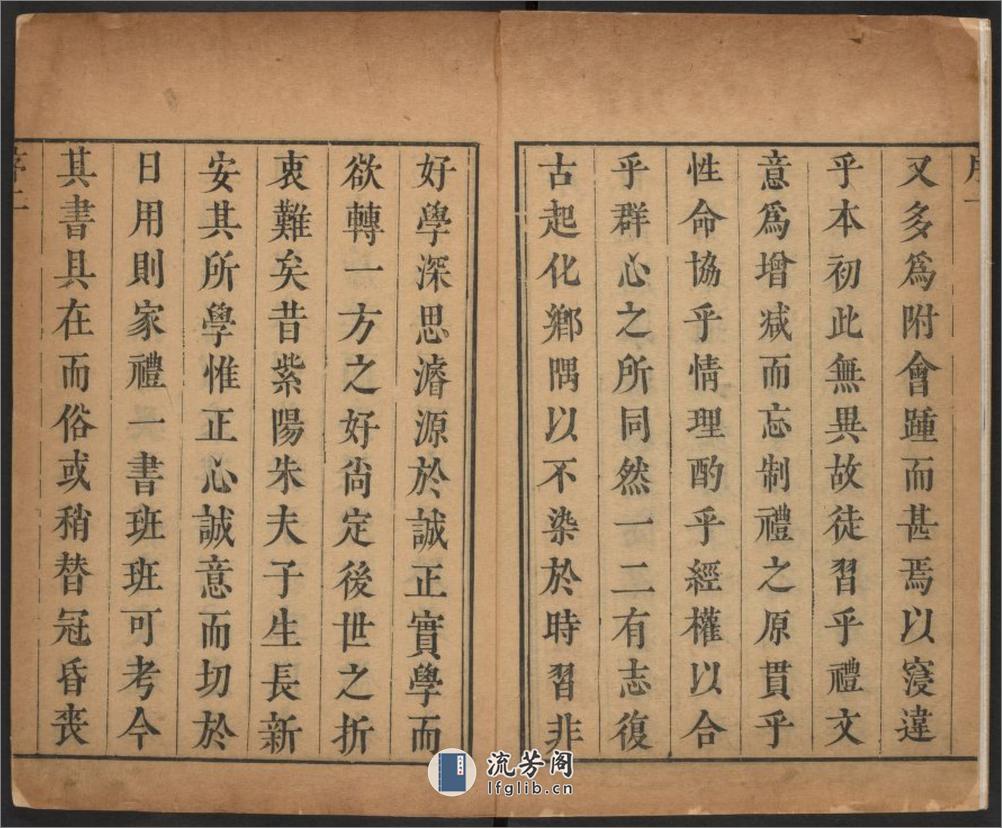 又多爲附會踵而甚焉以寖違
乎本初此無異故徒習乎禮文
意爲增减而忘制禮之原貫乎
性命協乎情理酌乎經權以合
乎群心之所同然一二有志復
古起化鄉隅以不染於時習非
好學深思濬源於誠正實學而
欲轉一方之好尙定後世之折
衷難矣昔紫陽朱夫子生長新
安其所學惟正心誠意而切於
日用則家禮一書班班可考今
其書具在而俗或稍替冠昏喪
流芳阁
lfglib.cn